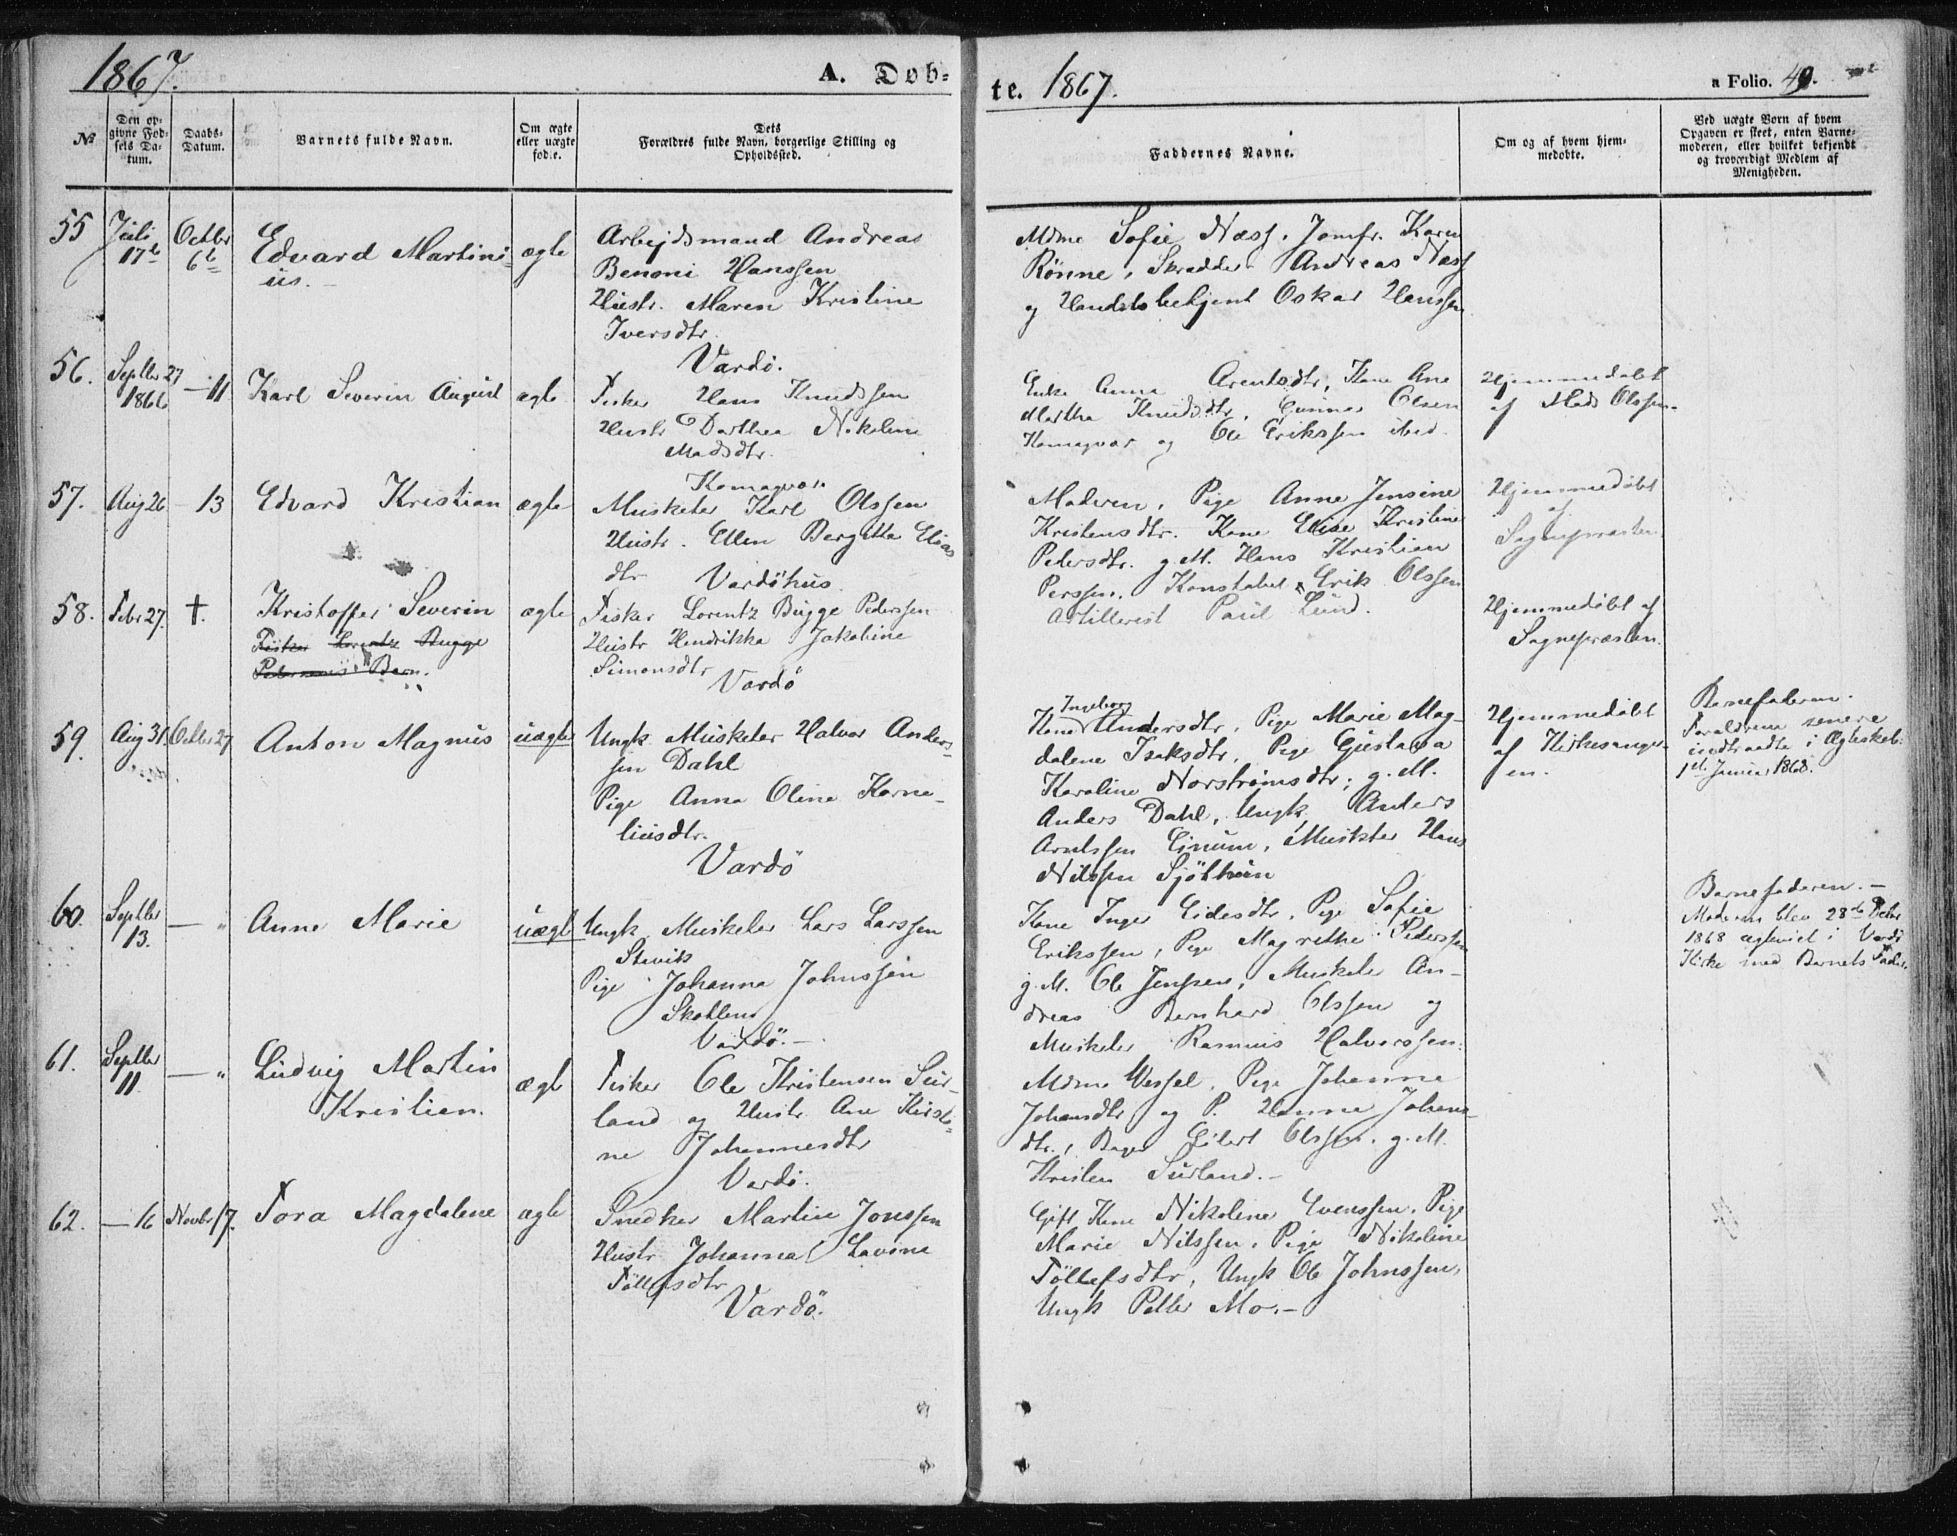 1867. A. Døb-
te. 1867. a Folio. 49.
№
Den opgivne Fødsels Datum.
Daabs-Datum.
Barnets fulde Navn.
Om ægte eller uægte fød:e.
Dets
Forældres fulde Navn, borgerlige Stilling og
Opholdssted.
Faddernes Navne.
Om og af hvem hjem-
medøbte.
Ved uægte Børn af hvem
Opgaven er skeet, enten Barne-
moderen, eller hvilket bekjendt
og troværdigt Medlem af
Menigheden.
55 Juli 17de Octbr 6te Edvard Martini-
us. ægte
Arbejdsmand Andreas
Benoni Hanssen
Hustr. Maren Kristine
Iversdtr.
Vardö.
Mdme Sofie Næss, Jomfr. Karen
Rönne, Skrædder Andreas Næss
og Handelsbetjent Oskar Hanssen
56. Septbr 27 1866 — 11 Karl Severin August ægte
Fisker Hans Knudssen
Hustr Dorthea Nikoline
Madsdtr.
Komagvær.
Enke Anna Arentsdtr, Kone Ane
Martha Knudsdtr, Gunnar Olsen
Komagvær og Ole Erikssen ibid.
Hjemmedöbt
af Mads Olssen.
57. Aug 26 — 13 Edvard Kristian ægte
Musketer Karl Olssen
Hustr. Ellen Bergitte Elias
dtr Vardöhus.
Moderen, Pige Anne Jensine
Kristensdtr. Kone Elise Kristine
Pedersdtr. g. M. Hans Kristian
Perssen, Konstabel Erik Olssen
Artillerist Paul Lund.
Hjemmedöbt
af
Sognepræsten
58. Febr 27. †. Kristoffer Severin ægte
Fisker Lorentz Bugge
Pedersens Barn.
Fisker Lorentz Bugge Pederssen
Hustr Hendrikka Jakobine
Simonsdtr
Vardö
Hjemmedöbt af
Sognepræsten.
59. Aug 31. Octbr 27 Anton Magnus uægte
Ungk Musketer Halvor Anders-
sen Dahl
Pige Anna Olina Korne-
liusdtr.
Vardö
Ingeborg
Kone Andersdtr, Pige Marie Mag-
dalene Isaksdtr, Pige Gustava
Karoline Norströmsdtr; g. M.
Anders Dahl, Ungk. Anders
Arntssen Einum, Musketer Hans
Nilssen Sjöthun
Hjemmedöbt
af Kirkesanger-
en.
Barnefaderen.
Forældrene senere
indtraadte i Ægteskab
1st Januar 1868.
60. Septbr 13. — „ Anne Marie uægte
Ungk Musketer Lars Larssen
Stuvik
Pige Johanna Johnssen
Skotlens
Vardö.—
Kone Inger Eidesdtr, Pige Sofie
Erikssen, Pige Magrethe Pederssen
g. M. Ole Jenssen, Musketer An-
dreas Bernhard Olssen og
Musketer Rasmus Halvorssen.
Barnefaderen.—
Moderen blev 28de Febr
1868 ægteviet i Vardö
Kirke med Barnets Fader.
61. Septbr 11. — „ Ludvig Martin
Kristian. ægte
Fisker Ole Kristensen Sur-
land og Hustr. Ane Kirsti-
ne Johannesdtr
Vardö.
Mdme Wessel, Pige Johanne
Johansdtr og P. Hanna Johans-
dtr., Bager Eilert Olssen. g. M.
Kristen Surland.—
62. — 16 Novbr 17. Tora Magdalene ægte
Snedker Martin Jonssen
Hustr Johanna Lavina
Töllefsdtr
Vardö.
Gift Kone Nikoline Evenssen, Pige
Marie Nilssen, Pige Nikoline
Töllefsdtr, Ungk Ole Johnssen,
Ungk Petter Mo.—